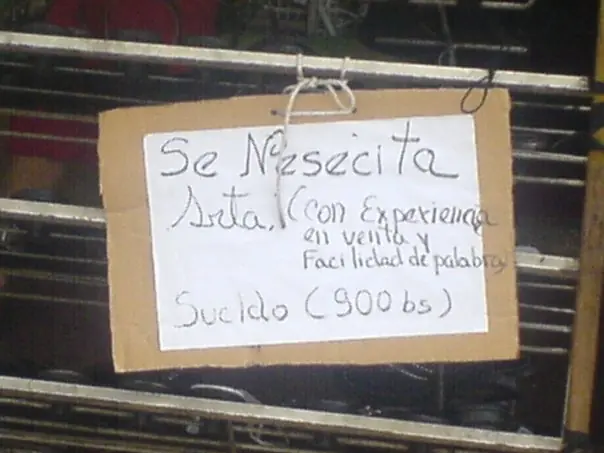 Se Nesecita
Srta. (con Experiencia
en venta y
Facilidad de palabra
Sueldo (900 bs)